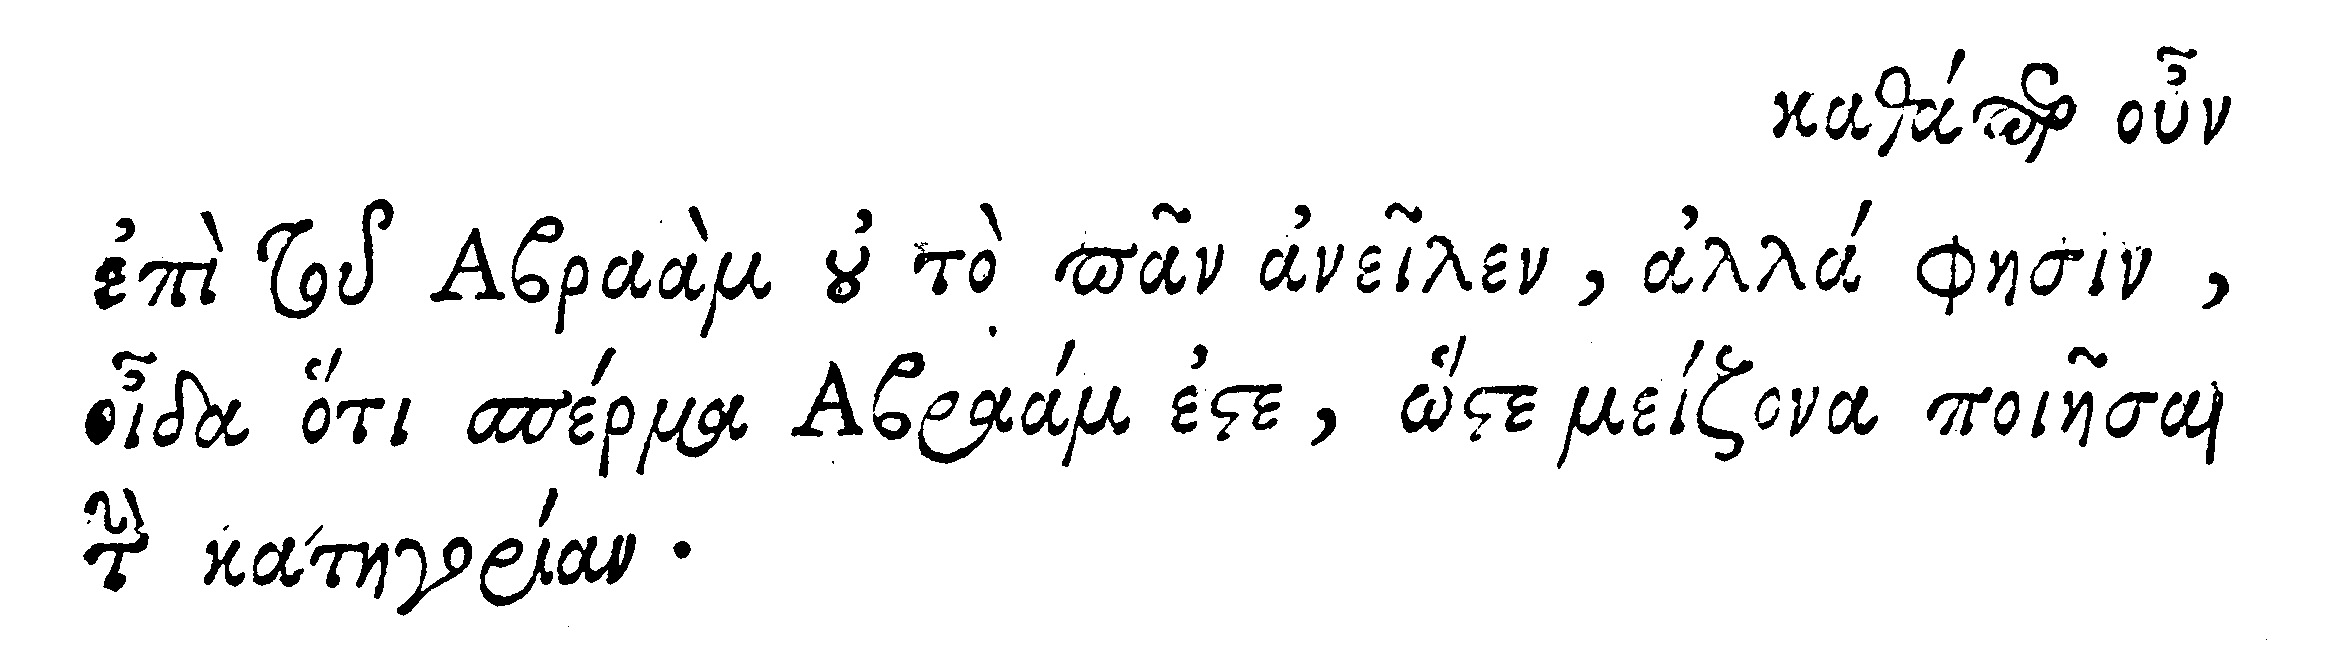 καθάπερ οὖν
ἐπὶ τοῦ Αβραὰμ οὐ τὸ πᾶν ἀνεῖλεν, ἀλλά φησιν,
οἶδα ὅτι σπέρμα Αβραάμ ἐστε, ὥστε μείζονα ποιῆσαι
τὴν κατηγορίαν.